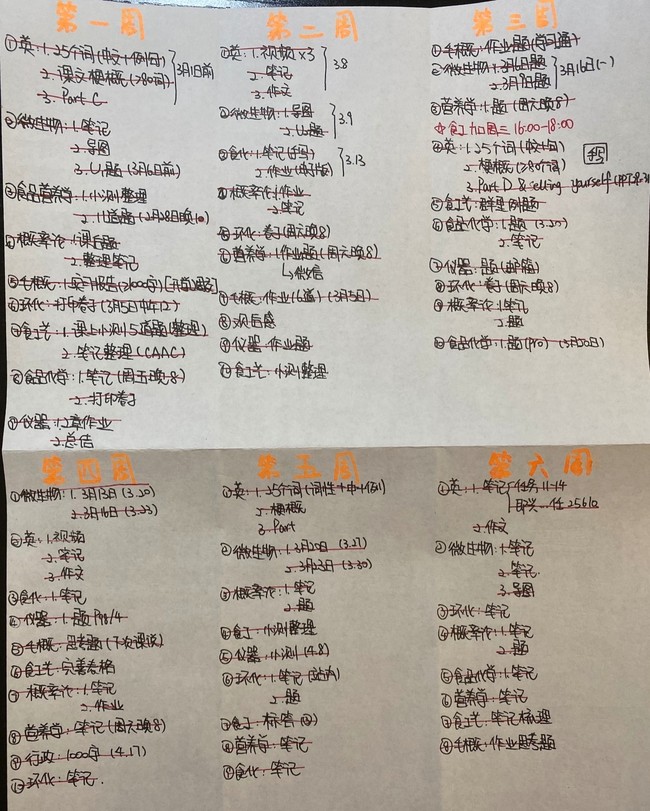 第一周
①英:1.25个词(中文+例句)
2.课文梗概(≥80词)
3.Part C
3月1日前
②微生物:1.笔记
2.导图
3.U1题(3月6日前)
③食品营养学:1.小测整理
2.11道题(2月28日晚10)
④概率论:1.课后题
2.整理笔记
⑤毛概:1.实践报告(2600字)
⑥环化:打印卷子(3月5日中午12)
⑦食工艺:1.课上小测5道题(整理)
2.笔记整理(CAAC)
⑧食品化学:1.笔记(周五晚8)
2.打印卷子
⑨仪器:1.2章作业
2.总结
第二周
①英:1.视频×3
2.笔记
3.作文
3.8
②微生物:1.导图
2.U2题
3.9
③食化:1.笔记
2.作业
3.13
④概率论:1.作业
2.笔记
⑤环化:卷子(周六晚8)
⑥营养学:1.作业题(周六晚8)
↳微信
⑦毛概:作业(6道)(3月5日)
⑧观后感
⑨仪器:作业题
⑩食工艺:小测整理
第三周
①毛概:作业题(学习通)
②微生物:1.3月6日题
2.3月9日题
3月16日(一)
③营养学:1.题(周六晚8)
☆食工加周三16:00-18:00
④英:1.25个词(中文+句)
2.梗概(≥80个词)
3.Part D & selling yourself
⑤食工艺:群里例题
⑥食品化学:1.题(3.20)
2.笔记
⑦仪器:题(邮箱)
⑧环化:卷子(周六晚8)
⑨概率论:1.笔记
2.题
⑩食品化学:1.题(pro)(3月20日)
第四周
①微生物:1.3月13日(3.20)
2.3月16日(3.23)
②英:1.视频
2.笔记
3.作文
③食化:1.笔记
④仪器:1.题P114
⑤毛概:思考题(下次课说)
⑥食工艺:完善表格
⑦概率论:1.笔记
2.作业
⑧营养学:笔记(周六晚8)
⑨行政:1000字(4.17)
⑩环化:笔记.
第五周
①英:1.25个词(词性+中+例)
2.梗概
3.Part
②微生物:1.3月20日(3.27)
2.3月23日(3.30)
③概率论:1.笔记
2.题
④食工:小测整理
⑤仪器:小测(4.8)
⑥环化:1.笔记
2.题
⑦食工:标答
⑧营养学:笔记
⑨食化:笔记
第六周
①英:1.笔记
任务11-14
25610
2.作文
②微生物:1.笔记
2.笔记.
3.导图
③环化:笔记
④概率论:1.笔记
2.题
⑤食品化学:1.笔记
⑥营养学:笔记
⑦食工艺:笔记梳理
⑧毛概:作业思考题